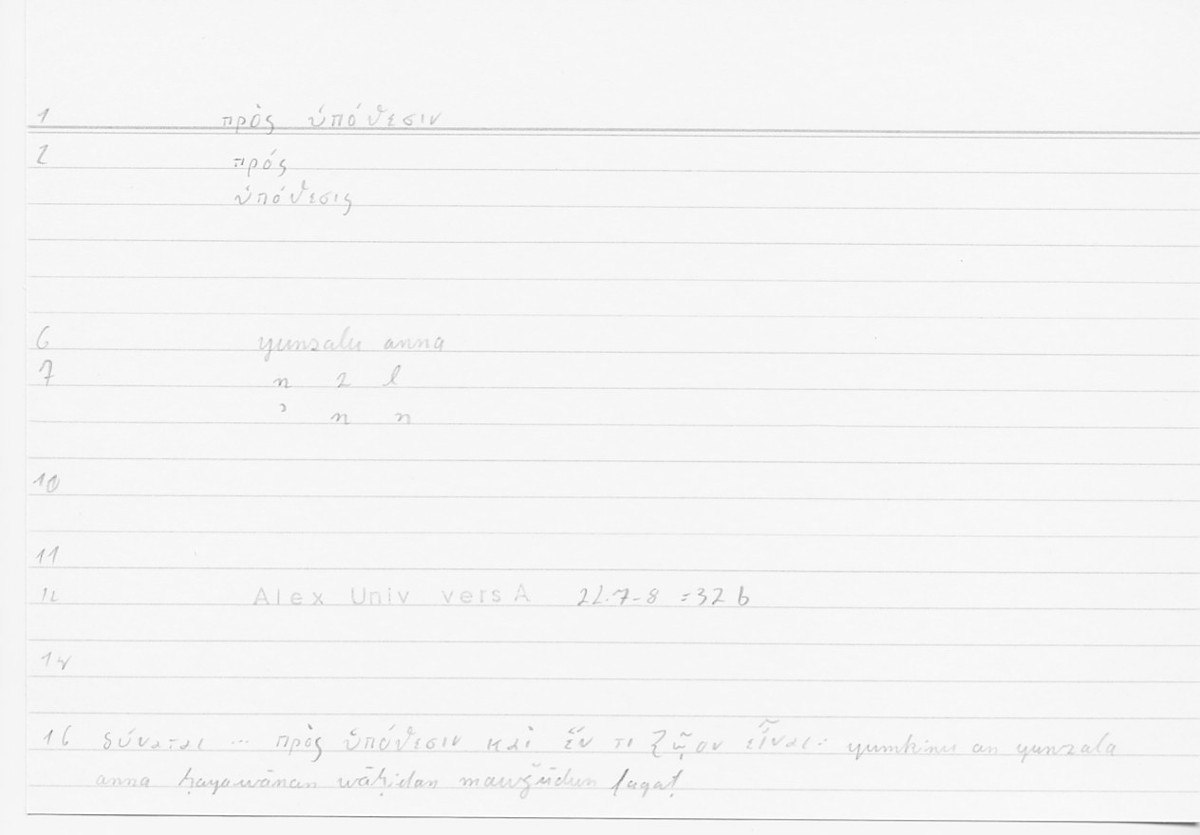 1 πρὸς ὑπόθεσιν
2 πρός
ὑπόθεσις
6 yunzalu anna
7 n z l
ʾ n n
10
11
12 Alex Univ vers A 22.7-8 = 32 b
14
16 δύναται ... πρὸς ὑπόθεσιν καὶ ἕν τι ζῷον εἶναι: yumkinu an yunzala
anna ḥayawānan wāḥidan mawǧūdun faqaṭ